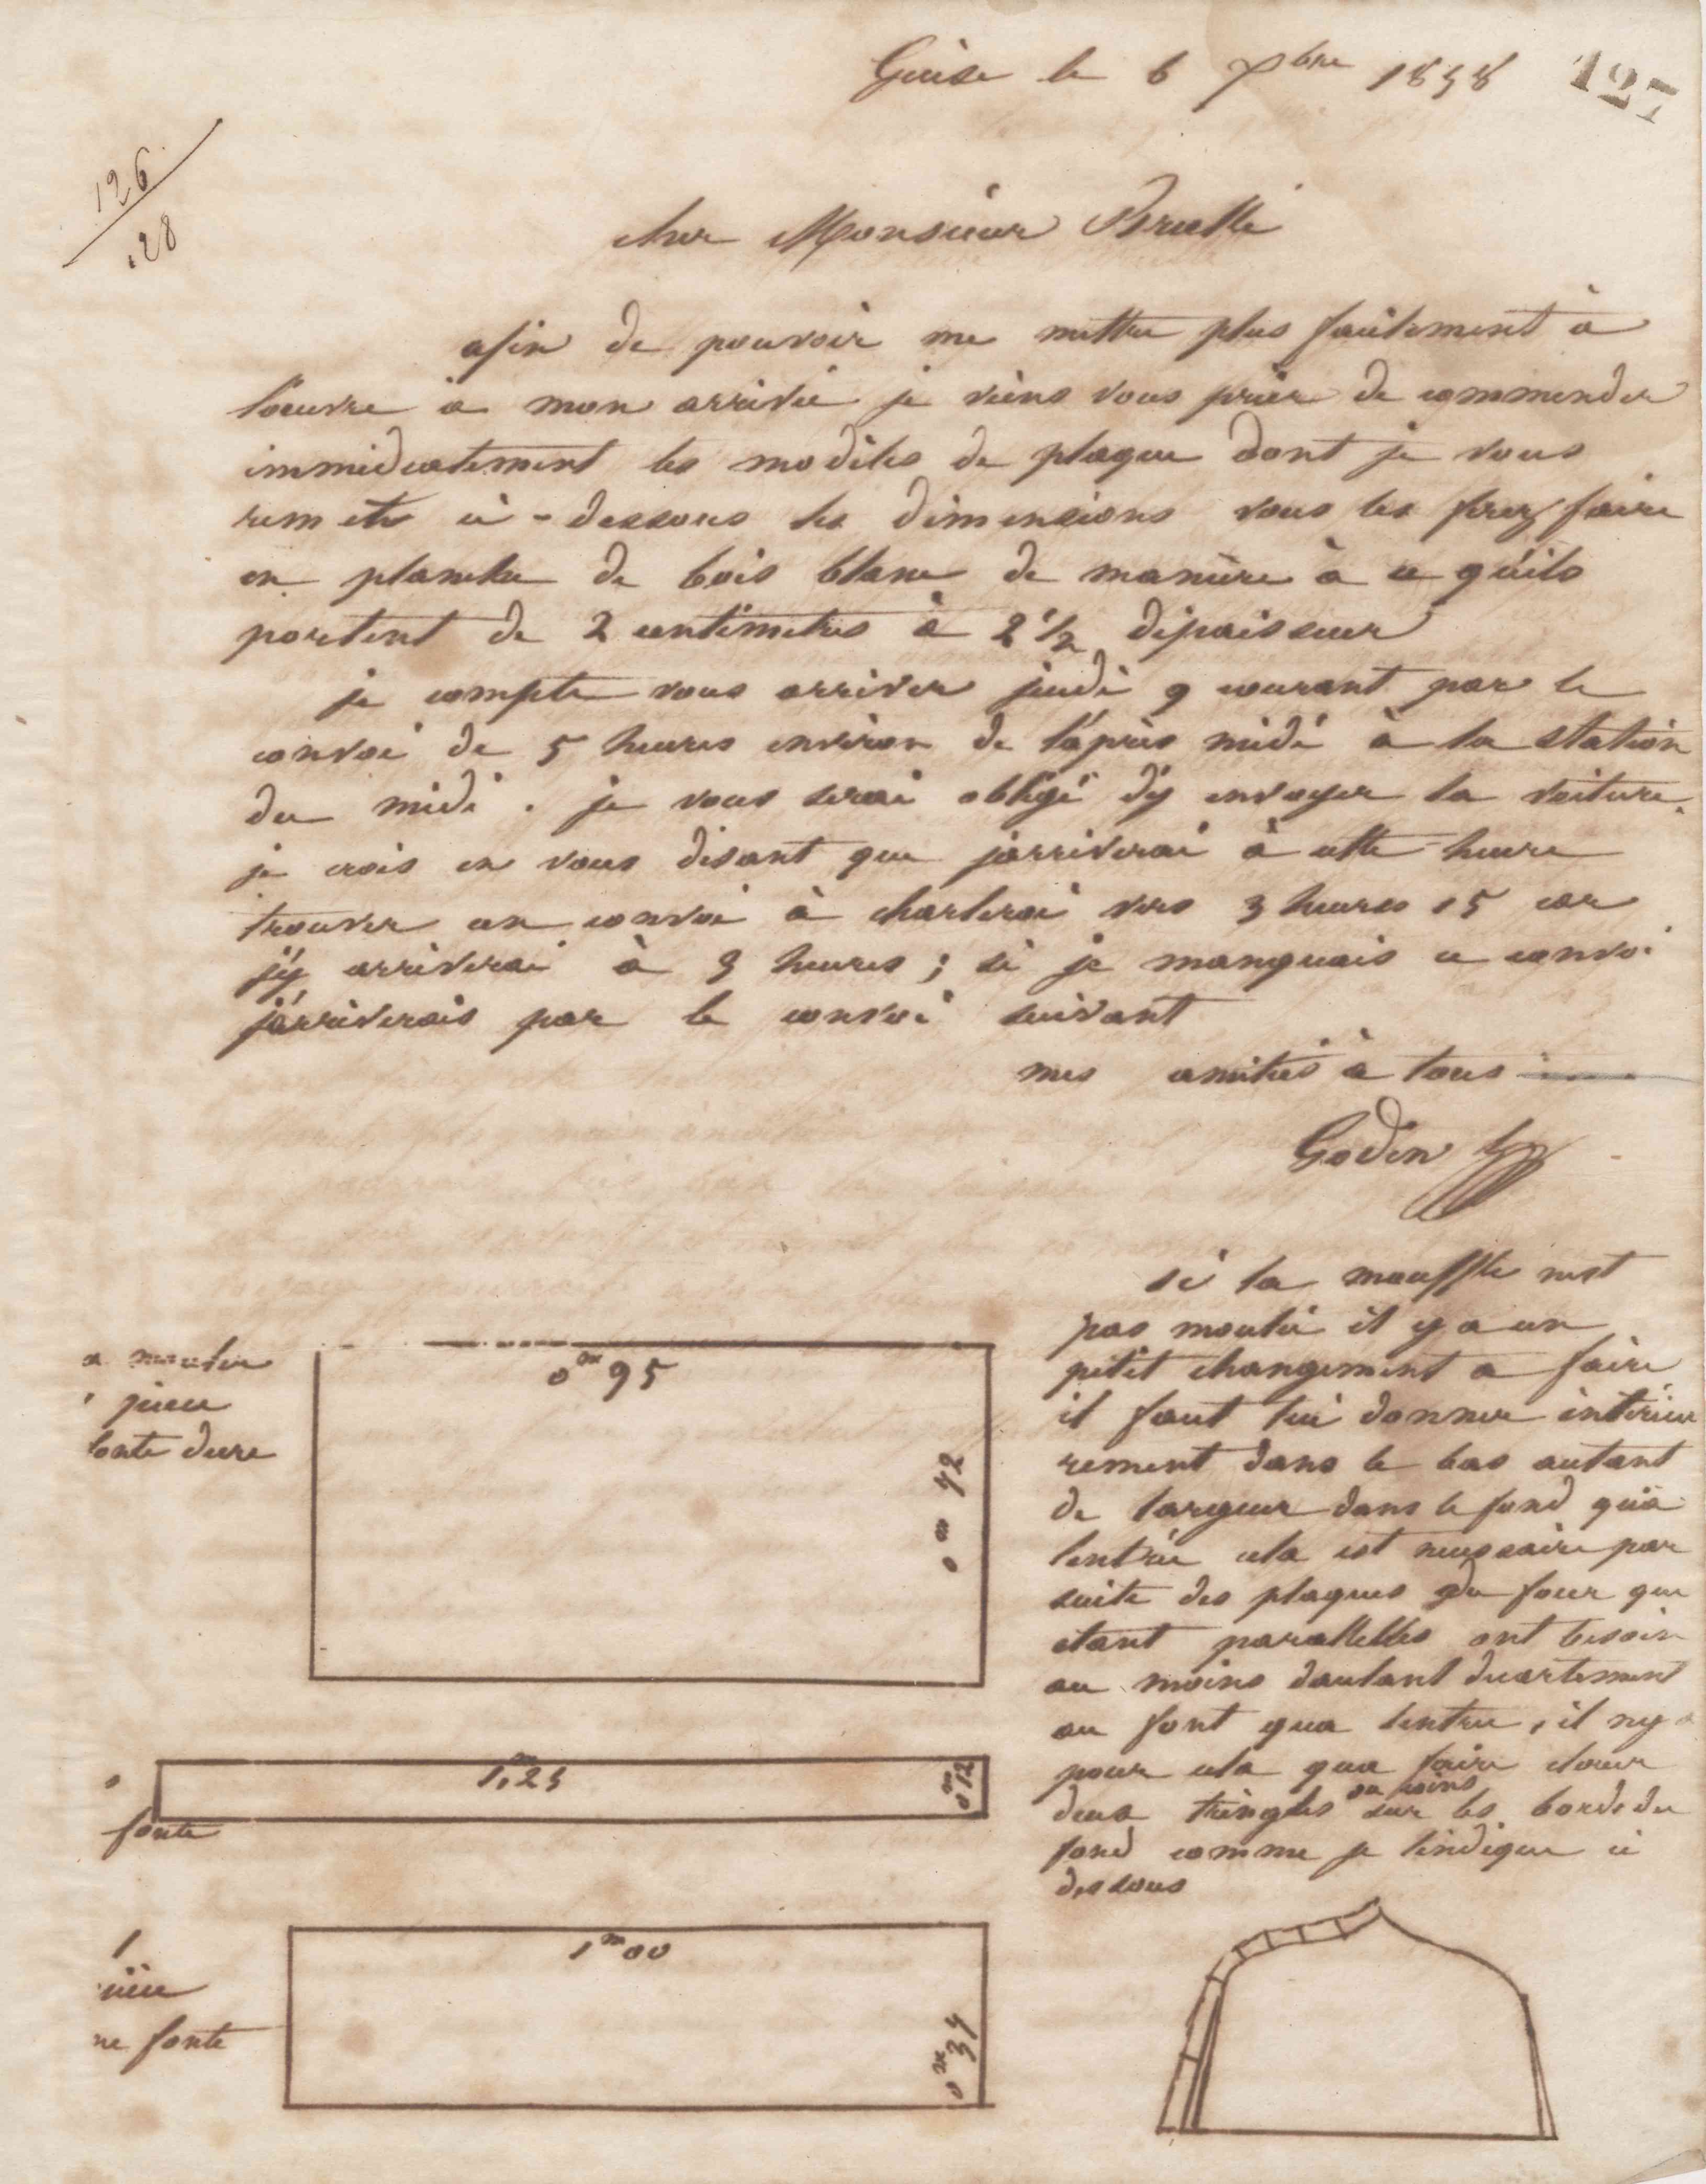 Guise le 6 Xbre 1858
127
126
128
cher Monsieur Brullé
afin de pouvoir me mettre plus facilement à
l'oeuvre à mon arrivée je viens vous prier de commender
immediatement les modèles de plaque dont je vous
remets ci-dessous les dimensions vous les ferez faire
en planche de bois blanc de manière à ce qu'ils
portent de 2 centimetres à 2 1/2 d'épaisseur
je compte vous arriver jeudi 9 courant par le
convoi de 5 heures environ de l'après midi à la station
du midi. je vous serai obligé d'y envoyer la voiture.
je crois en vous disant que j'arriverai à cette heure
trouver un convoi à charleroi vers 3 heures 15 car
j'y arriverai à 3 heures ; si je manquais ce convoi
j'arriverais par le convoi suivant
mes amitiés à tous
Godin
si la mouffle nest
pas moulée il y a un
petit changement a faire
il faut lui donner intérieu
rement dans le bas autant
de largeur dans le fond qu'à
lentrée cela est necessaire par
suite des plaques du four que
etant parallelles ont besoin
au moins dautant decartement
au font qua lentree, il ny a
pour cela qua faire clouer
deux tringles ou coins sur les bords du
fond comme je lindique ci
dessous
a mouler
pièce
fonte dure
0m 95
0m 42
1m,25
0m 12
fonte
1
pièce
ne fonte
1m 00
0m 34